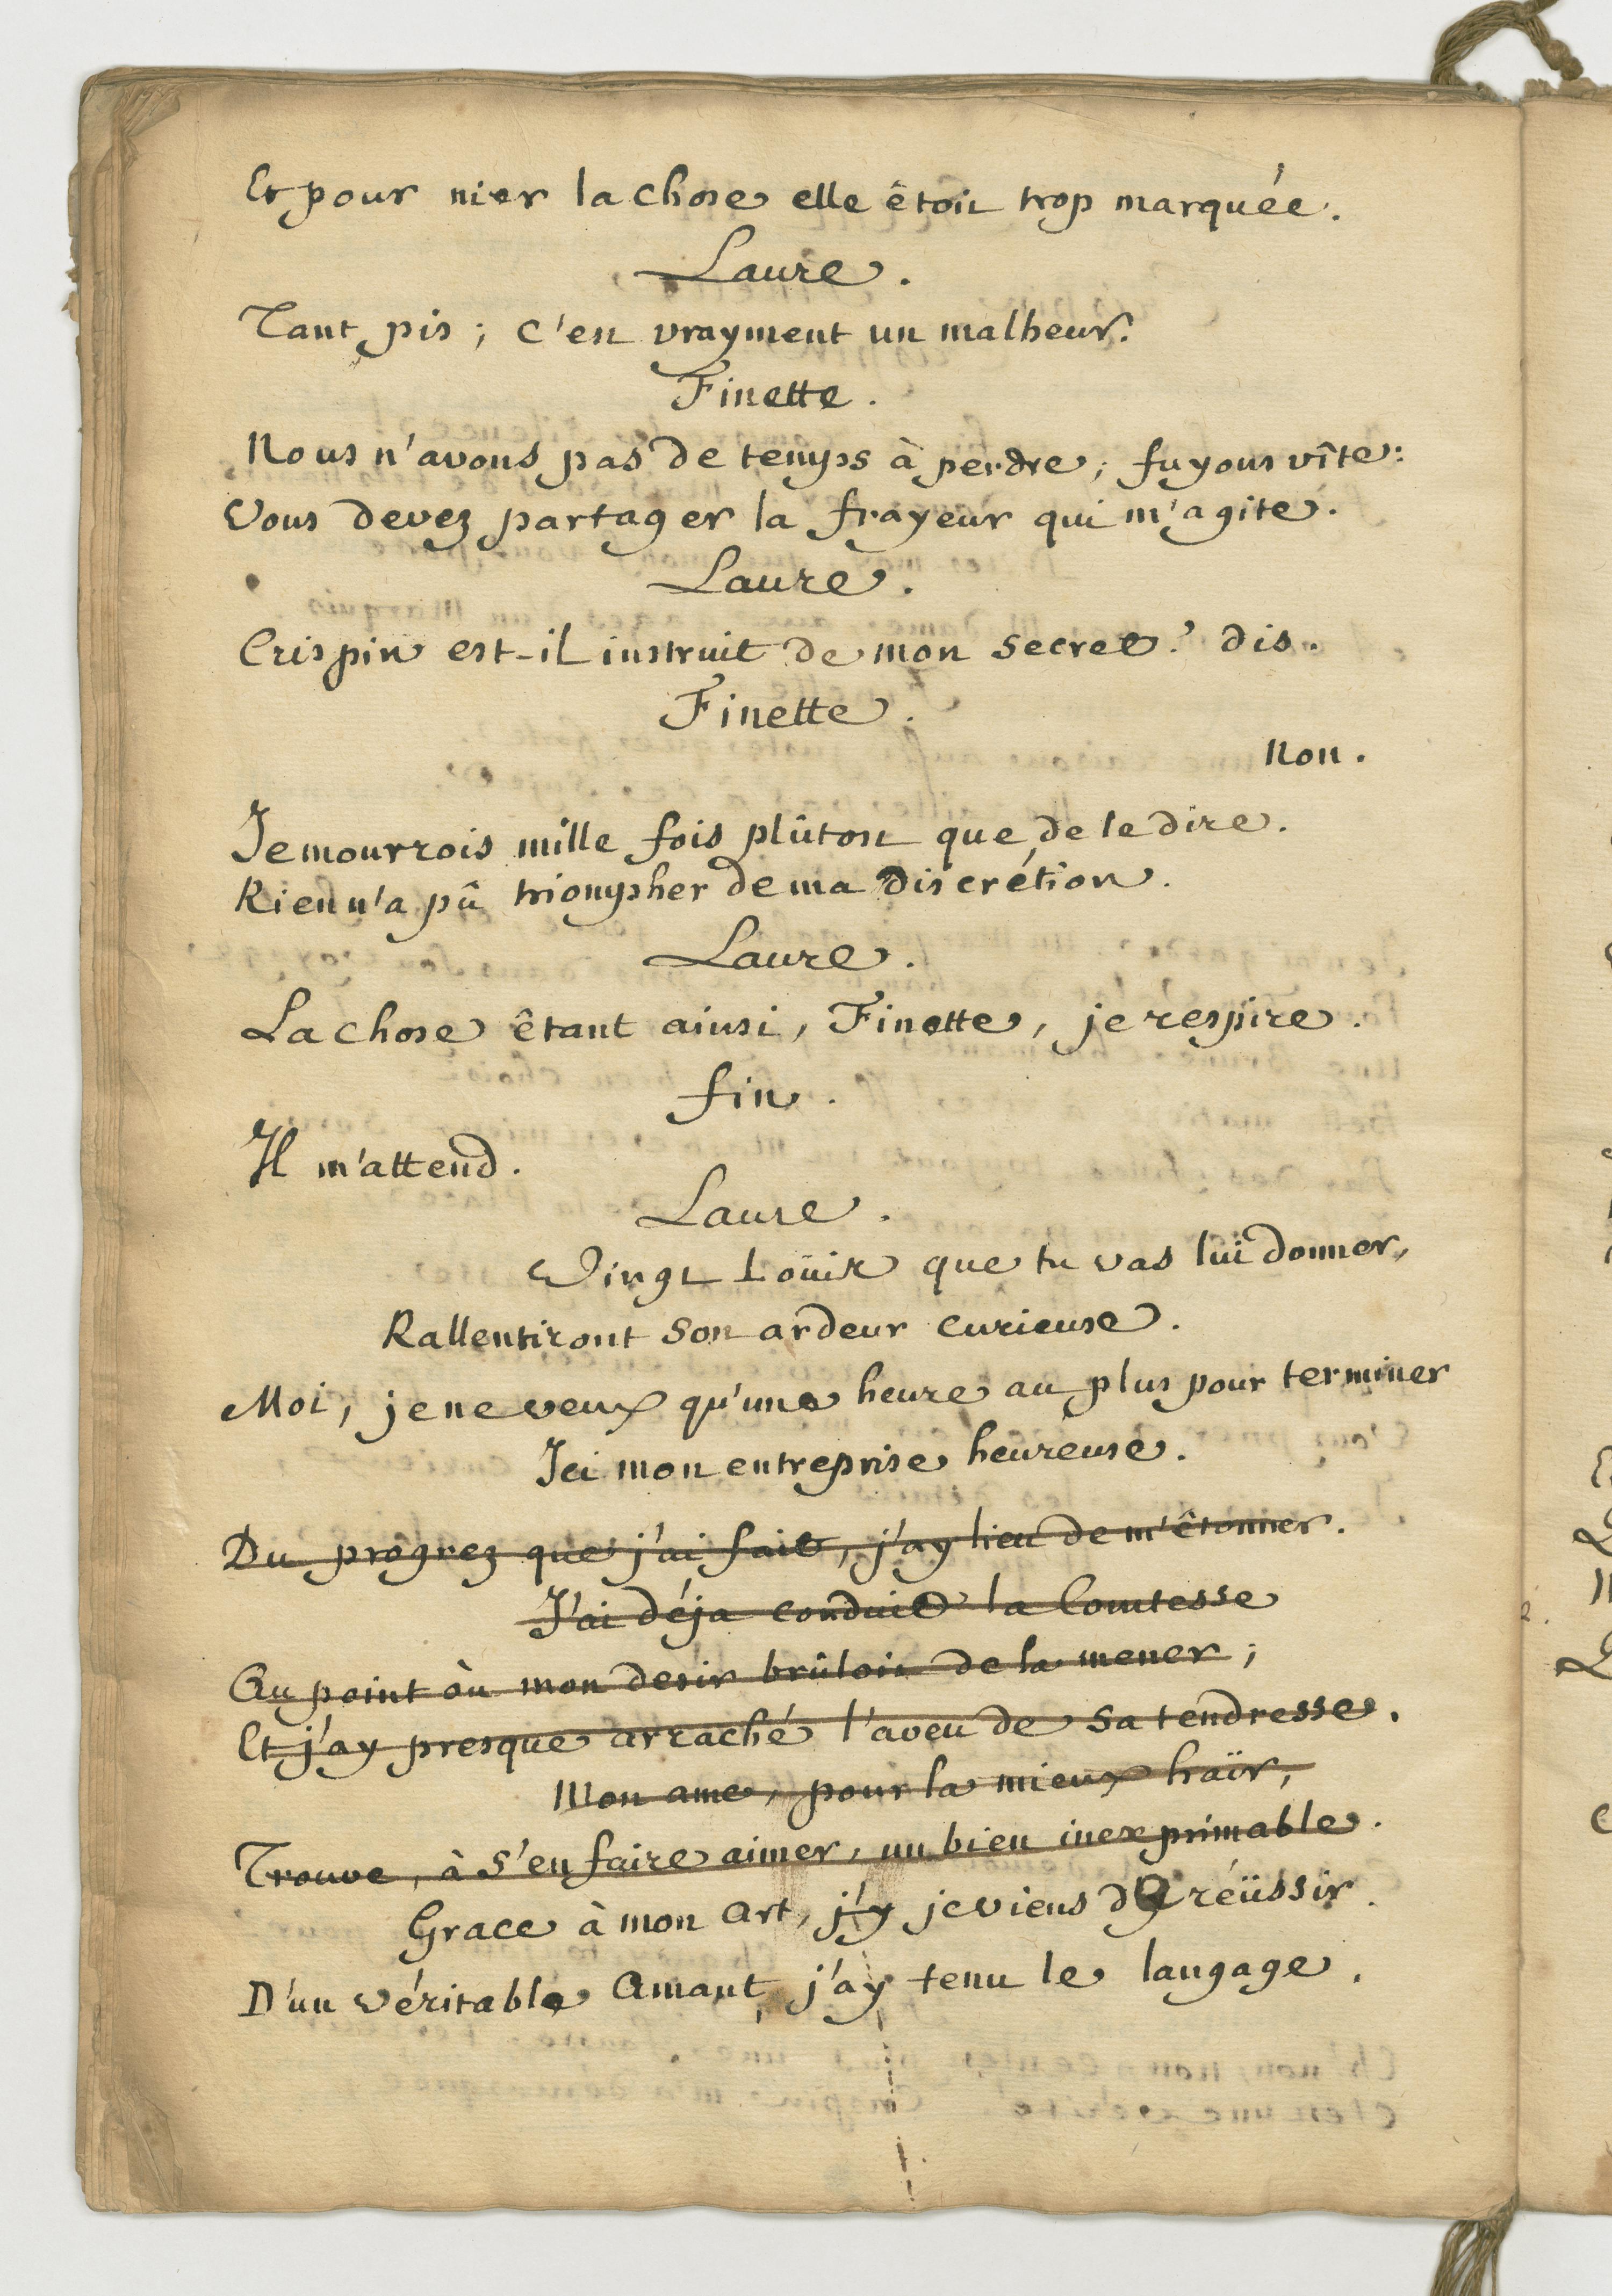 Et pour nier la chose elle êtoit trop marquée.
Laure.
Tant pis; c'est vrayment un malheur.
Finette.
Nous n'avons pas de temps à perdre; fuyons vîte:
Vous devez partager la frayeur qui m'agite.
Laure.
Crispin est-il instruit de mon secret? dis.
Finette.
Non.
Je mourrois mille fois plûtost que de le dire.
Rien n'a pû triompher de ma discrétion.
Laure.
La chose êtant ainsi, Finette, je respire.
fin.
Il m'attend.
Laure.
Vingt Loüis que tu vas lui donner,
Rallentiront son ardeur curieuse.
Moi, je ne veux qu'une heure au plus pour terminer
Ici mon entreprise heureuse.
Du progrez que j'ai fait, j'ay lieu de m'êtonner.
J'ai déja conduit la Comtesse
Au point où mon desir brûloit de la mener;
Et j'ay presque arraché l'aveu de sa tendresse.
Mon ame, pour la mieux haïr,
Trouve, à s'en faire aimer, un bien inexprimable.
Grace à mon art, j'y je viens d'y réüssir.
D'un véritable Amant, j'ay tenu le langage.